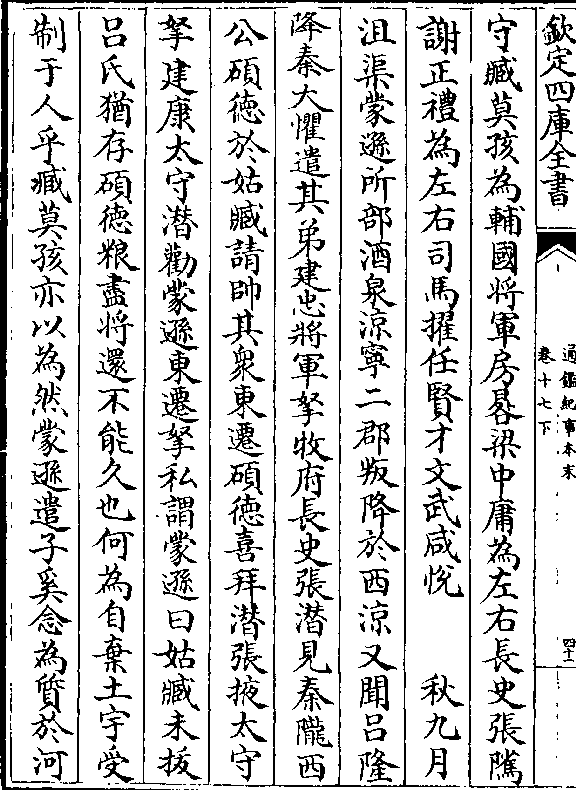 欽定四庫全書
通鑑紀事本末
卷十七下
四十二
守臧莫孩為輔國將軍房晷梁中庸為左右長史張騭
謝正禮為左右司馬擢任賢才文武咸悅　秋九月
沮渠蒙遜所部酒泉涼寧二郡叛降於西涼又聞呂隆
降秦大懼遣其弟建忠將軍挐牧府長史張潛見秦隴西
公碩德於姑臧請帥其衆東遷碩德喜拜潛張掖太守
挐建康太守潛勸蒙遜東遷挐私謂蒙遜曰姑臧未拔
呂氏猶存碩德粮盡將還不能久也何為自棄土宇受
制于人乎臧莫孩亦以為然蒙遜遣子奚念為質於河